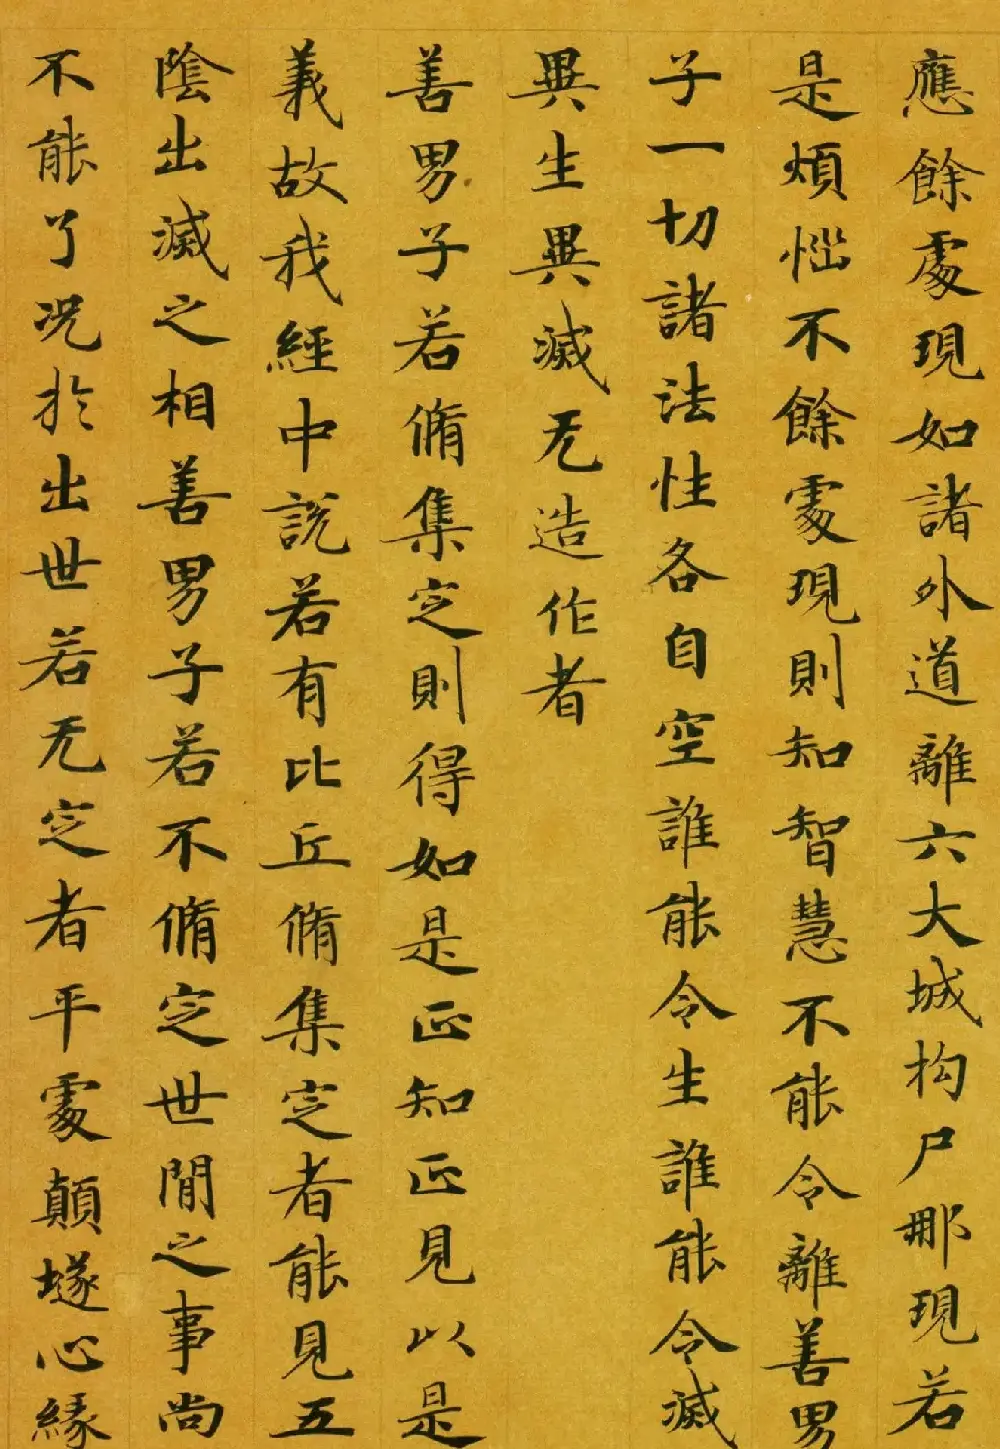 應餘處現如諸外道離六大城构尸那現若
是煩惱不餘處現則知智慧不能令離善男
子一切諸法性各自空誰能令生誰能令滅
異生異滅无造作者
善男子若脩集定則得如是正知正見以是
義故我經中說若有比丘脩集定者能見五
陰出滅之相善男子若不脩定世閒之事尚
不能了況於出世若无定者平處顛墜心緣